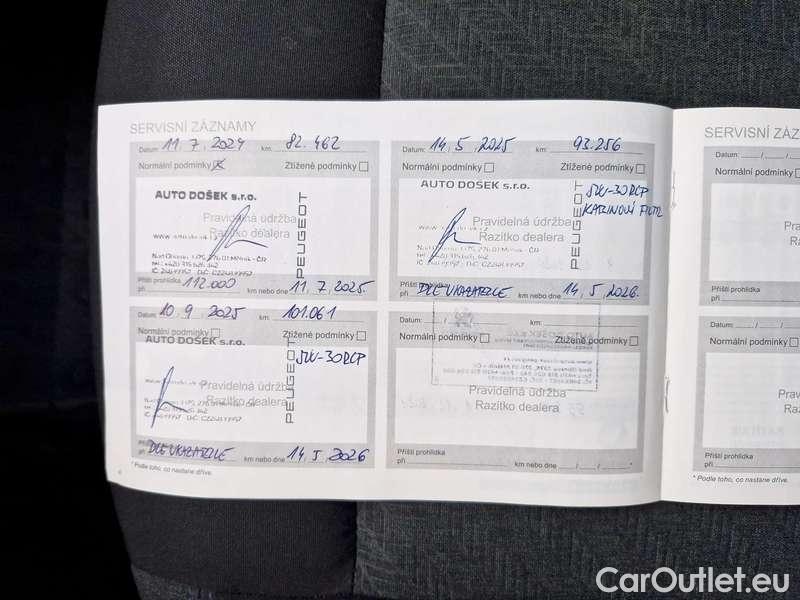 SERVISNÍ ZÁZNAMY
Datum: 11.7.2024 km: 82.462
Normální podmínky Ztížené podmínky
AUTO DOŠEK s.r.o.
Pravidelná údržba
Razítko dealera
PEUGEOT
Příští prohlídka
při 112.000 km nebo dne 11.7.2025.
Datum: 14.5.2025 km: 93.256
Normální podmínky Ztížené podmínky
AUTO DOŠEK s.r.o.
Pravidelná údržba
Razítko dealera
PEUGEOT
5W-30RCP
KABINOVÝ FILTR
Příští prohlídka
při DLE UKAZATELE km nebo dne 14.5.2026.
Datum: 10.9.2025 km: 101.061
Normální podmínky Ztížené podmínky
AUTO DOŠEK s.r.o.
Pravidelná údržba
Razítko dealera
PEUGEOT
5W-30RCP
Příští prohlídka
při DLE UKAZATELE km nebo dne 14.5.2026
Datum: / / km:
Normální podmínky Ztížené podmínky
Pravidelná údržba
Razítko dealera
Příští prohlídka
při km nebo dne / / *
* Podle toho, co nastane dříve.
SERVISNÍ ZÁZ
Datum: / /
Normální podmínky
Prav
Raz
Příští prohlídka
při
Datum: / /
Normální podmínky
Prav
Raz
Příští prohlídka
při
* Podle toho, co nastane dříve.
CarOutlet.eu